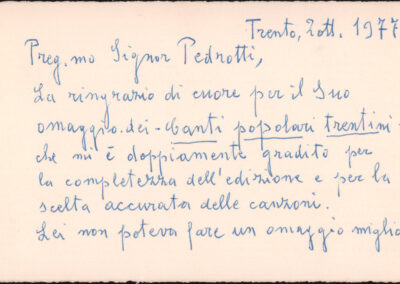 Trento, 2 ott. 1977
Preg.mo Signor Pedrotti,
La ringrazio di cuore per il Suo
omaggio dei "Canti popolari trentini"
che mi è doppiamente gradito per
la completezza dell'edizione e per la
scelta accurata delle canzoni.
Lei non poteva fare un omaggio miglio